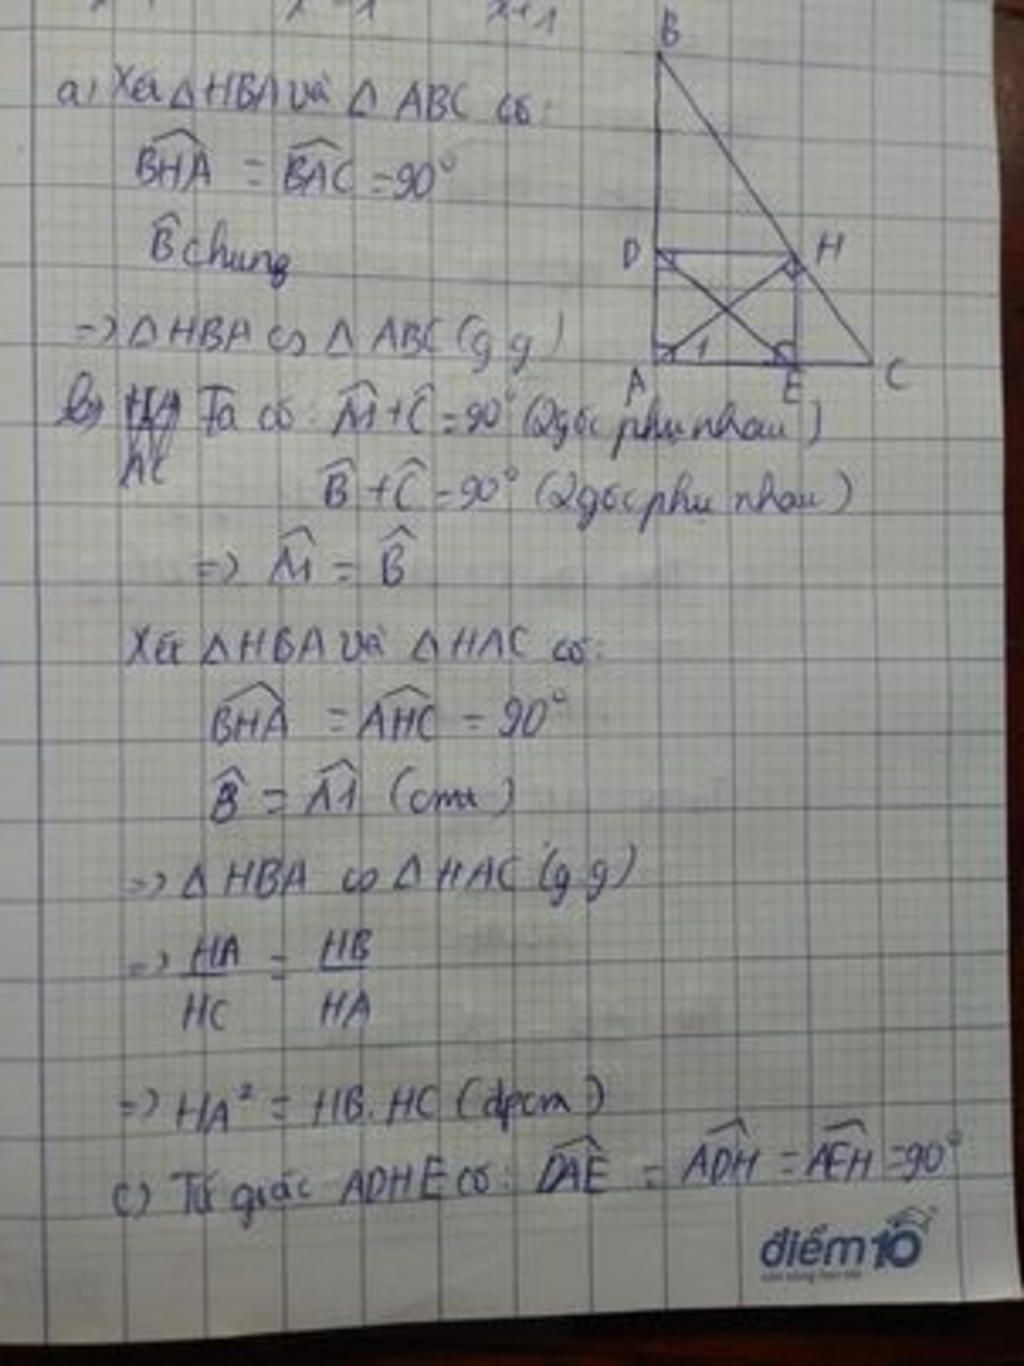 B
a) Xét △HBA và △ ABC có:
BHA = BAC = 90°
B chung
D H
=> △HBA ∽ △ABC (g g)
A 1 E C
b) Ta có: A1 + C = 90° (2 góc phụ nhau)
AC
B + C = 90° (2 góc phụ nhau)
=> A1 = B
Xét △HBA và △HAC có:
BHA = AHC = 90°
B = A1 (cmt)
=> △HBA ∽ △HAC (g g)
=> HA/HC = HB/HA
=> HA² = HB.HC (đpcm)
c) Tứ giác ADHE có: DAE = ADH = AEH = 90°
điểm10